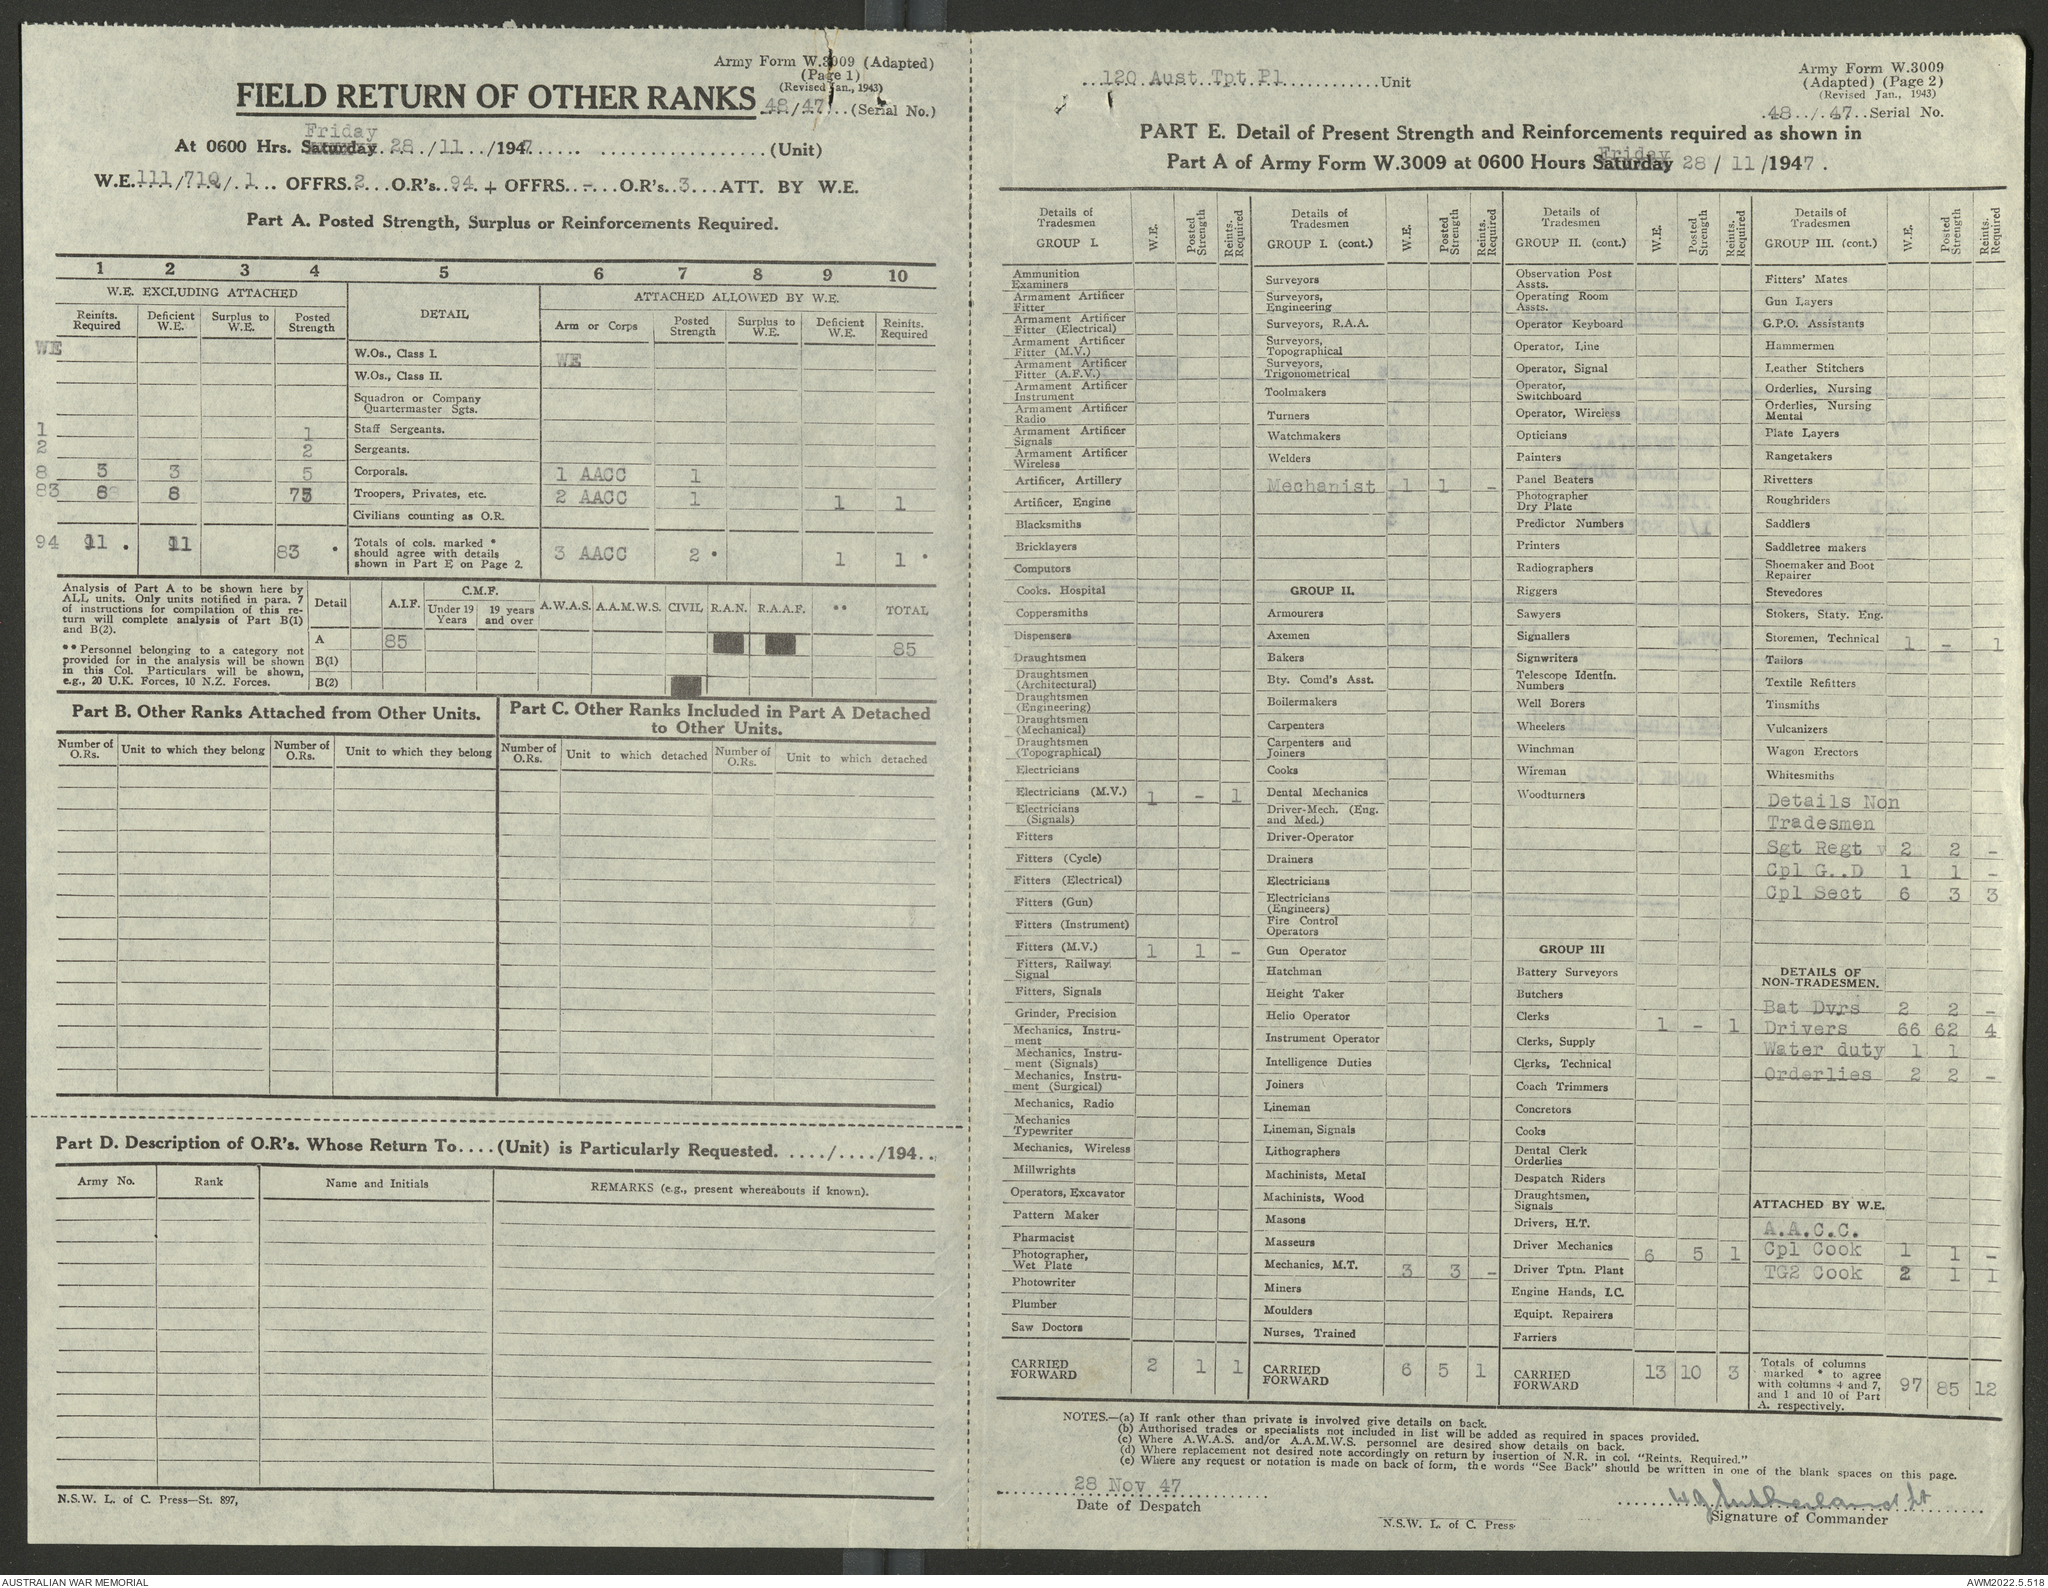 Army Form W.3009 (Adapted)
(Page 1)
(Revised Jan., 1943)
FIELD RETURN OF OTHER RANKS 48/47 (Serial No.)
Friday
At 0600 Hrs. Saturday 28/11/1947 (Unit)
W.E. 111/71Q/1 OFFRS. 2 O.R's. 94 + OFFRS. - O.R's. 3 ATT. BY W.E.
Part A. Posted Strength, Surplus or Reinforcements Required.
1 2 3 4 5 6 7 8 9 10
W.E. EXCLUDING ATTACHED DETAIL ATTACHED ALLOWED BY W.E.
Reinfts. Required Deficient W.E. Surplus to W.E. Posted Strength Arm or Corps Posted Strength Surplus to W.E. Deficient W.E. Reinfts. Required
WE W.Os., Class I. WE
W.Os., Class II.
Squadron or Company Quartermaster Sgts.
1 1 Staff Sergeants.
2 2 Sergeants.
8 3 3 5 Corporals. 1 AACC 1
83 8 8 75 Troopers, Privates, etc. 2 AACC 1 1 1
Civilians counting as O.R.
94 11 * 11 83 * Totals of cols. marked * should agree with details shown in Part E on Page 2. 3 AACC 2 * 1 1 *
Analysis of Part A to be shown here by
ALL units. Only units notified in para. 7
of instructions for compilation of this re-
turn will complete analysis of Part B(1)
and B(2).
** Personnel belonging to a category not
provided for in the analysis will be shown
in this Col. Particulars will be shown,
e.g., 20 U.K. Forces, 10 N.Z. Forces.
Detail A.I.F. C.M.F. Under 19 Years 19 years and over A.W.A.S. A.A.M.W.S. CIVIL R.A.N. R.A.A.F. ** TOTAL
A 85 85
B(1)
B(2)
Part B. Other Ranks Attached from Other Units.
Number of O.Rs. Unit to which they belong Number of O.Rs. Unit to which they belong
Part C. Other Ranks Included in Part A Detached
to Other Units.
Number of O.Rs. Unit to which detached Number of O.Rs. Unit to which detached
Part D. Description of O.R's. Whose Return To....(Unit) is Particularly Requested. ..../..../194..
Army No. Rank Name and Initials REMARKS (e.g., present whereabouts if known).
N.S.W. L. of C. Press—St. 897,
120 Aust Tpt Pl Unit
Army Form W.3009
(Adapted) (Page 2)
(Revised Jan., 1943)
48/47 Serial No.
PART E. Detail of Present Strength and Reinforcements required as shown in
Friday
Part A of Army Form W.3009 at 0600 Hours Saturday 28/11/1947.
Details of Tradesmen GROUP I. W.E. Posted Strength Reints. Required
Ammunition Examiners
Armament Artificer Fitter
Armament Artificer Fitter (Electrical)
Armament Artificer Fitter (M.V.)
Armament Artificer Fitter (A.F.V.)
Armament Artificer Instrument
Armament Artificer Radio
Armament Artificer Signals
Armament Artificer Wireless
Artificer, Artillery
Artificer, Engine
Blacksmiths
Bricklayers
Computors
Cooks, Hospital
Coppersmiths
Dispensers
Draughtsmen
Draughtsmen (Architectural)
Draughtsmen (Engineering)
Draughtsmen (Mechanical)
Draughtsmen (Topographical)
Electricians
Electricians (M.V.) 1 - 1
Electricians (Signals)
Fitters
Fitters (Cycle)
Fitters (Electrical)
Fitters (Gun)
Fitters (Instrument)
Fitters (M.V.) 1 1 -
Fitters, Railway Signal
Fitters, Signals
Grinder, Precision
Mechanics, Instru-ment
Mechanics, Instru-ment (Signals)
Mechanics, Instru-ment (Surgical)
Mechanics, Radio
Mechanics Typewriter
Mechanics, Wireless
Millwrights
Operators, Excavator
Pattern Maker
Pharmacist
Photographer, Wet Plate
Photowriter
Plumber
Saw Doctors
CARRIED FORWARD 2 1 1
Details of Tradesmen GROUP I. (cont.) W.E. Posted Strength Reints. Required
Surveyors
Surveyors, Engineering
Surveyors, R.A.A.
Surveyors, Topographical
Surveyors, Trigonometrical
Toolmakers
Turners
Watchmakers
Welders
Mechanist 1 1 -
GROUP II.
Armourers
Axemen
Bakers
Bty. Comd's Asst.
Boilermakers
Carpenters
Carpenters and Joiners
Cooks
Dental Mechanics
Driver-Mech. (Eng. and Med.)
Driver-Operator
Drainers
Electricians
Electricians (Engineers)
Fire Control Operators
Gun Operator
Hatchman
Height Taker
Helio Operator
Instrument Operator
Intelligence Duties
Joiners
Lineman
Lineman, Signals
Lithographers
Machinists, Metal
Machinists, Wood
Masons
Masseurs
Mechanics, M.T. 3 3 -
Miners
Moulders
Nurses, Trained
CARRIED FORWARD 6 5 1
Details of Tradesmen GROUP II. (cont.) W.E. Posted Strength Reints. Required
Observation Post Assts.
Operating Room Assts.
Operator Keyboard
Operator, Line
Operator, Signal
Operator, Switchboard
Operator, Wireless
Opticians
Painters
Panel Beaters
Photographer Dry Plate
Predictor Numbers
Printers
Radiographers
Riggers
Sawyers
Signallers
Signwriters
Telescope Identfn. Numbers
Well Borers
Wheelers
Winchman
Wireman
Woodturners
GROUP III
Battery Surveyors
Butchers
Clerks 1 - 1
Clerks, Supply
Clerks, Technical
Coach Trimmers
Concretors
Cooks
Dental Clerk Orderlies
Despatch Riders
Draughtsmen, Signals
Drivers, H.T.
Driver Mechanics 6 5 1
Driver Tptn. Plant
Engine Hands, I.C.
Equipt. Repairers
Farriers
CARRIED FORWARD 13 10 3
Details of Tradesmen GROUP III. (cont.) W.E. Posted Strength Reints. Required
Fitters' Mates
Gun Layers
G.P.O. Assistants
Hammermen
Leather Stitchers
Orderlies, Nursing
Orderlies, Nursing Mental
Plate Layers
Rangetakers
Rivetters
Roughriders
Saddlers
Saddletree makers
Shoemaker and Boot Repairer
Stevedores
Stokers, Staty. Eng.
Storemen, Technical 1 - 1
Tailors
Textile Refitters
Tinsmiths
Vulcanizers
Wagon Erectors
Whitesmiths
Details Non
Tradesmen
Sgt Regt 2 2 -
Cpl G..D 1 1 -
Cpl Sect 6 3 3
DETAILS OF NON-TRADESMEN.
Bat Dvrs 2 2 -
Drivers 66 62 4
Water duty 1 1
Orderlies 2 2 -
ATTACHED BY W.E.
A.A.C.C.
Cpl Cook 1 1 -
TG2 Cook 2 1 1
Totals of columns marked * to agree with columns 4 and 7, and 1 and 10 of Part A. respectively. 97 85 12
NOTES.—(a) If rank other than private is involved give details on back.
(b) Authorised trades or specialists not included in list will be added as required in spaces provided.
(c) Where A.W.A.S. and/or A.A.M.W.S. personnel are desired show details on back.
(d) Where replacement not desired note accordingly on return by insertion of N.R. in col. "Reints. Required."
(e) Where any request or notation is made on back of form, the words "See Back" should be written in one of the blank spaces on this page.
28 Nov 47
Date of Despatch
WJ Sutherland Lt
Signature of Commander
N.S.W. L. of C. Press
AUSTRALIAN WAR MEMORIAL
AWM2022.5.518